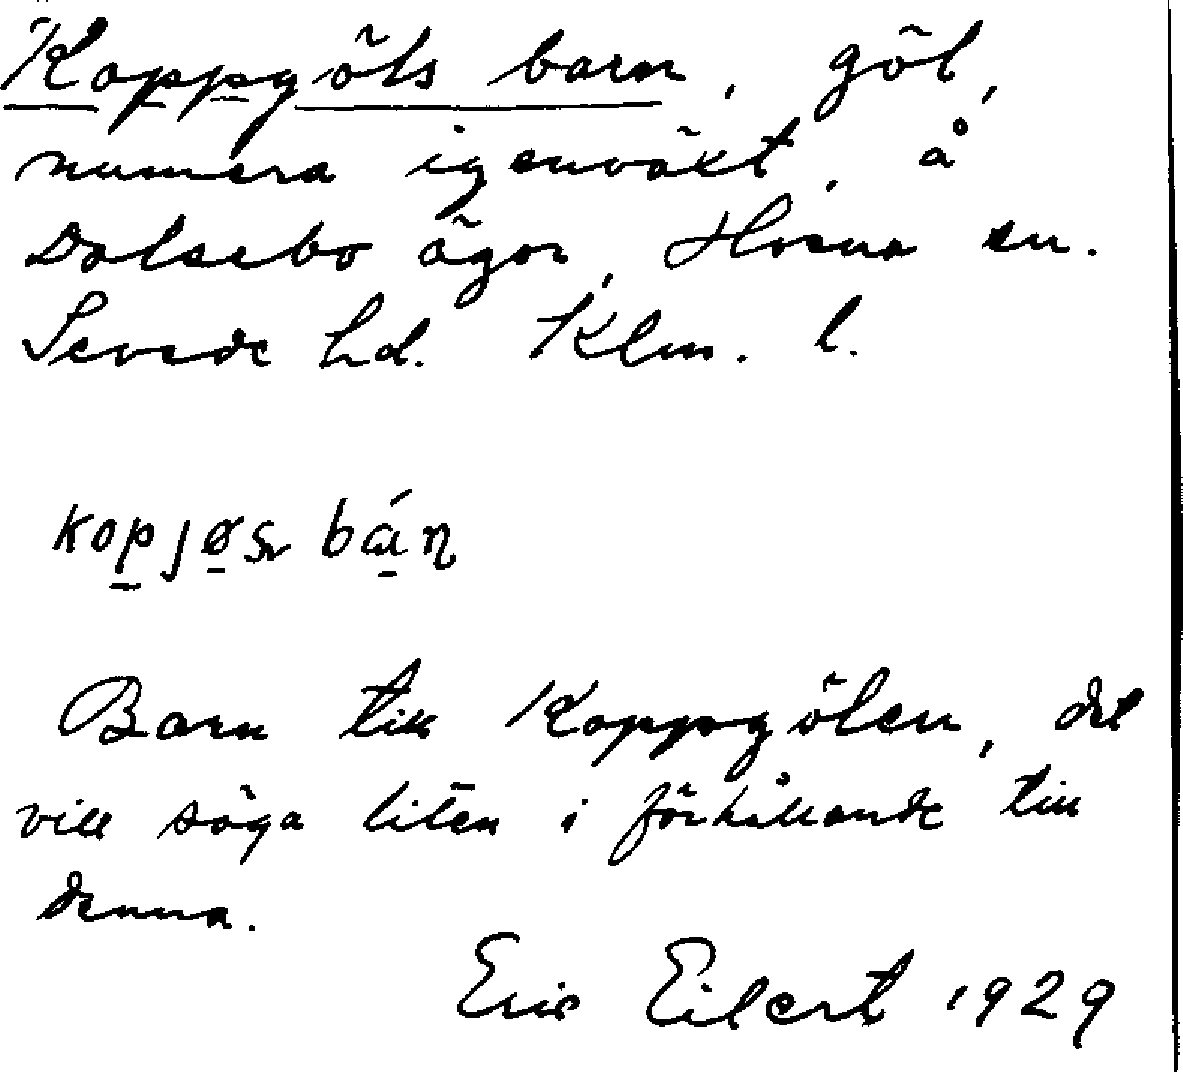 Koppgöls barn, göl,
numera igenväxt, å
Dalsebo ägor, Hvena sn.
Sevede hd. Klm. l.
Barn till Koppgölen, det
vill säga liten i förhållande till
denna.
Eric Eilert 1929